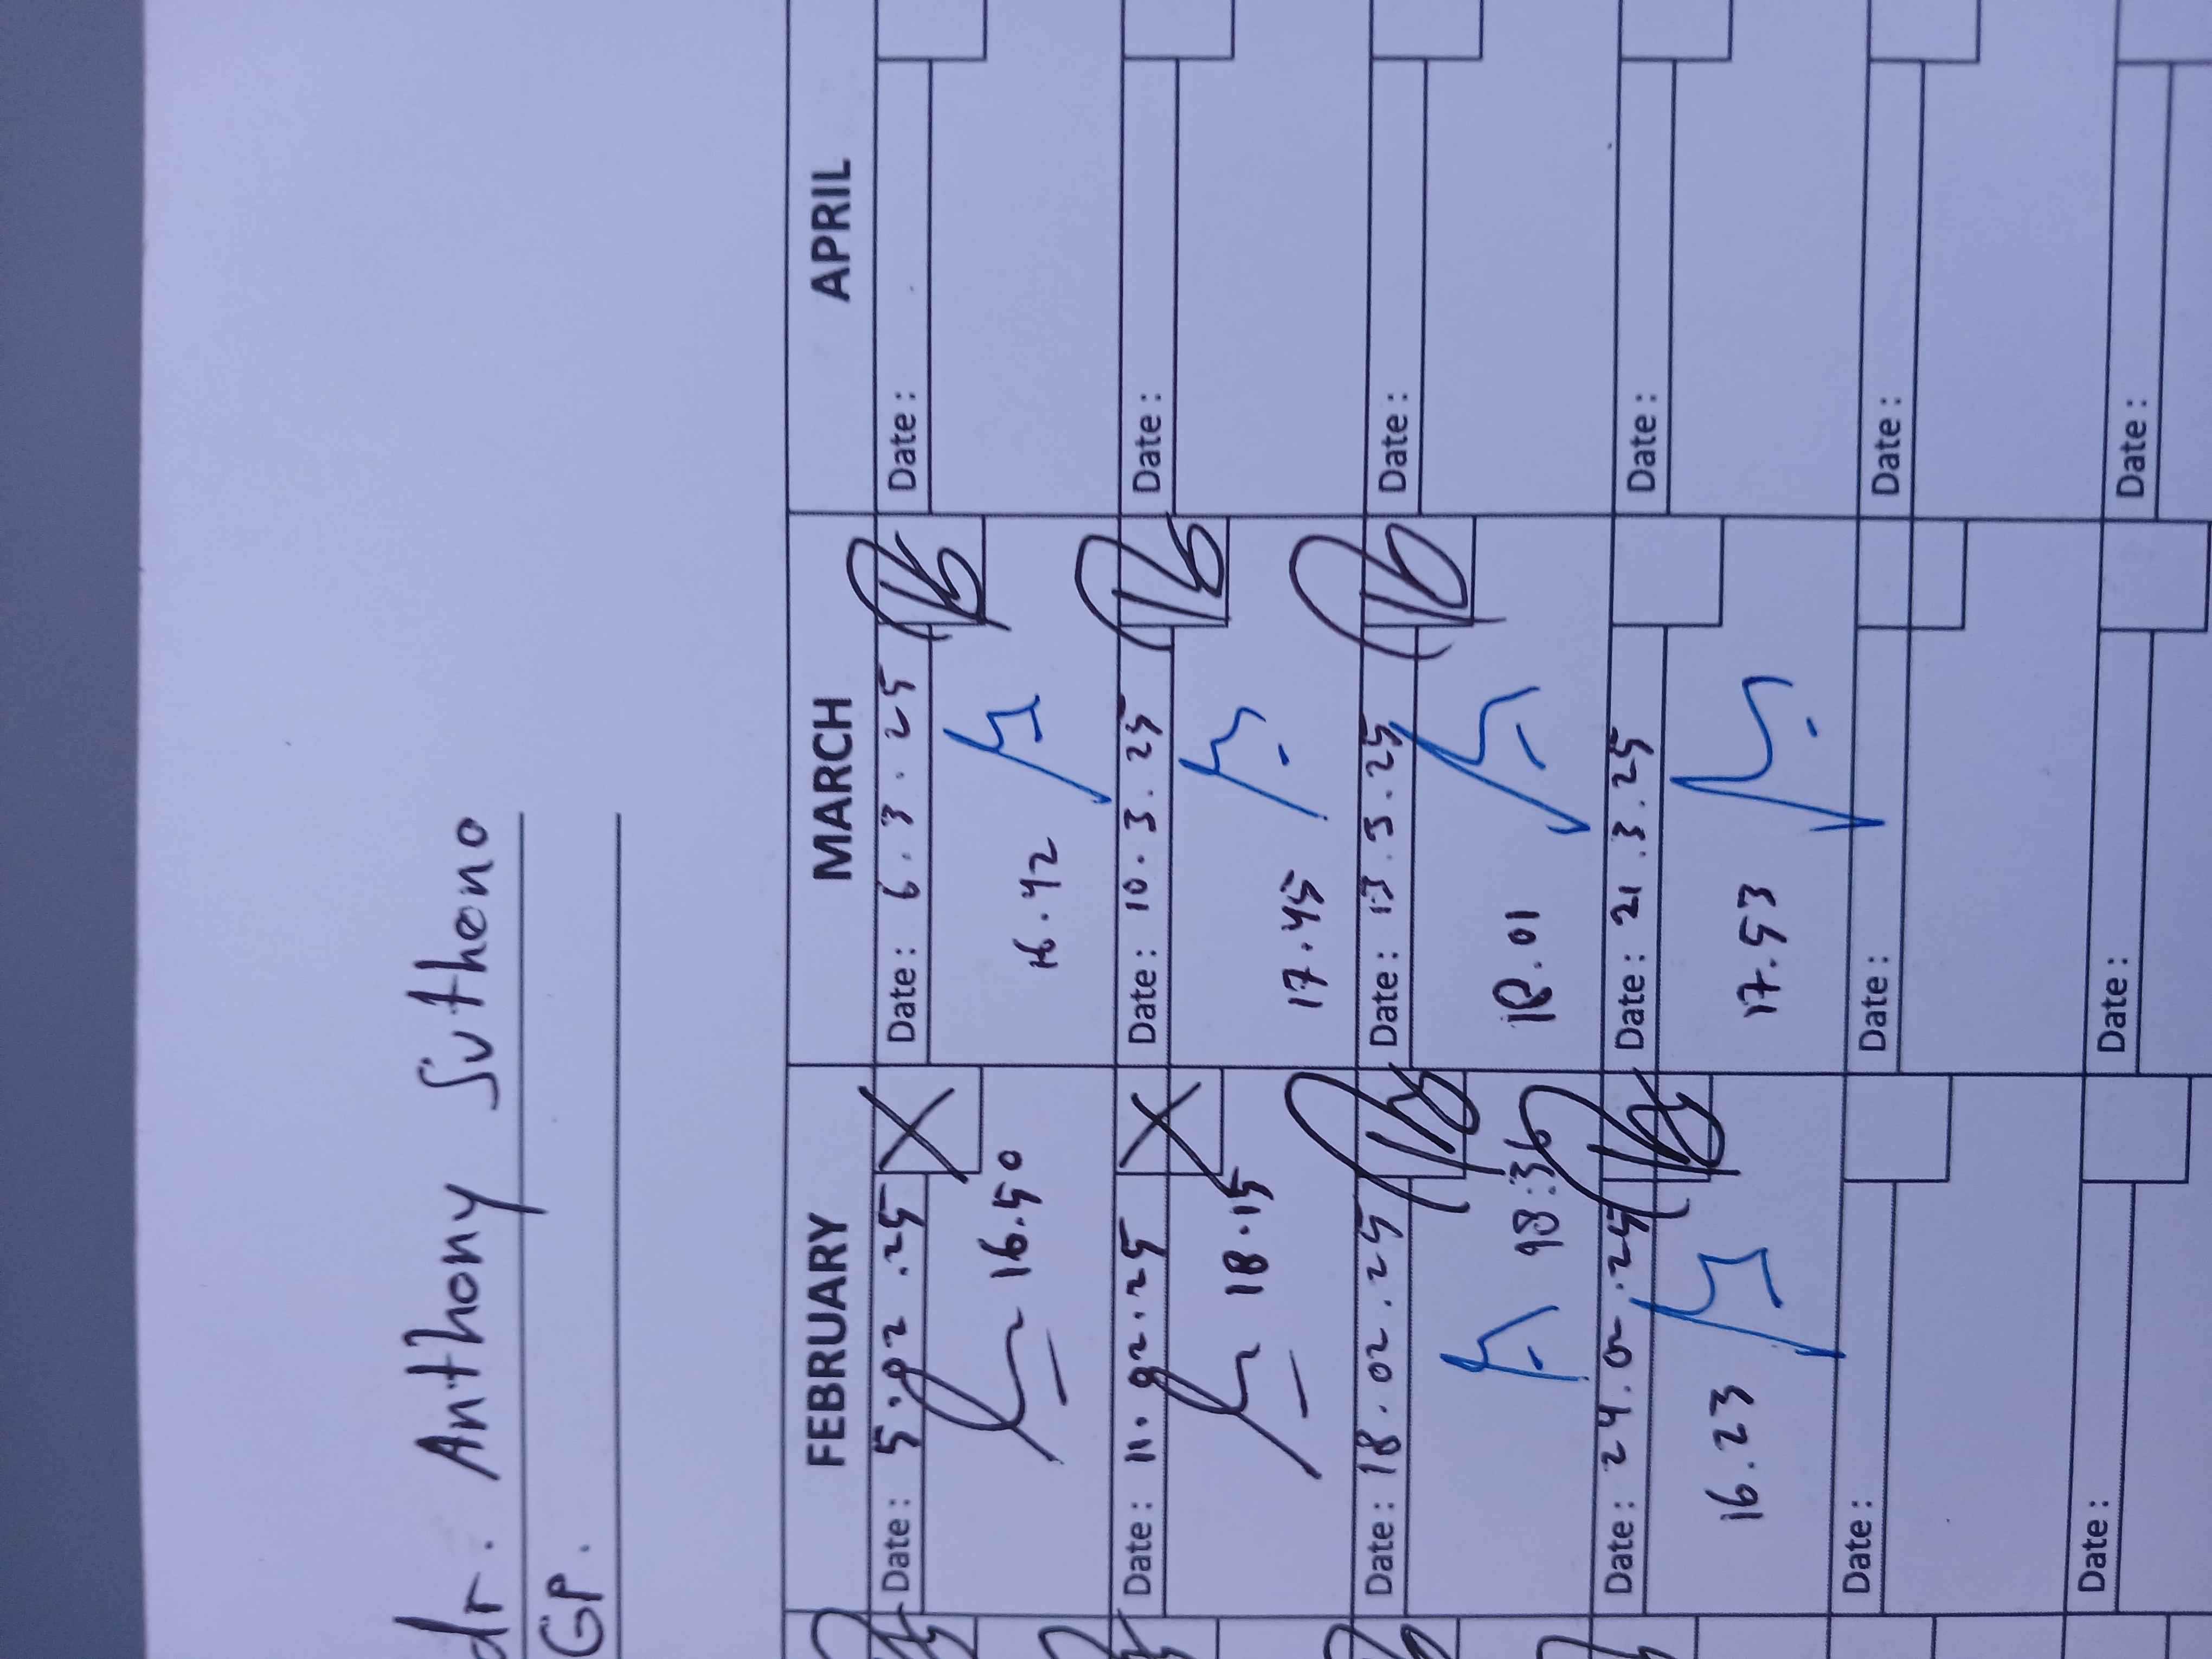 dr. Anthony Sutheno
GP.
FEBRUARY MARCH APRIL
Date: 5.02.25 Date: 6.3.25 Date:
16.50 16.42
Date: 11.02.25 Date: 10.3.25 Date:
18.15 17.45
Date: 18.02.25 Date: 13.3.25 Date:
18:36 18.01
Date: 24.02.25 Date: 21.3.25 Date:
16.23 17.53
Date: Date: Date:
Date: Date: Date: